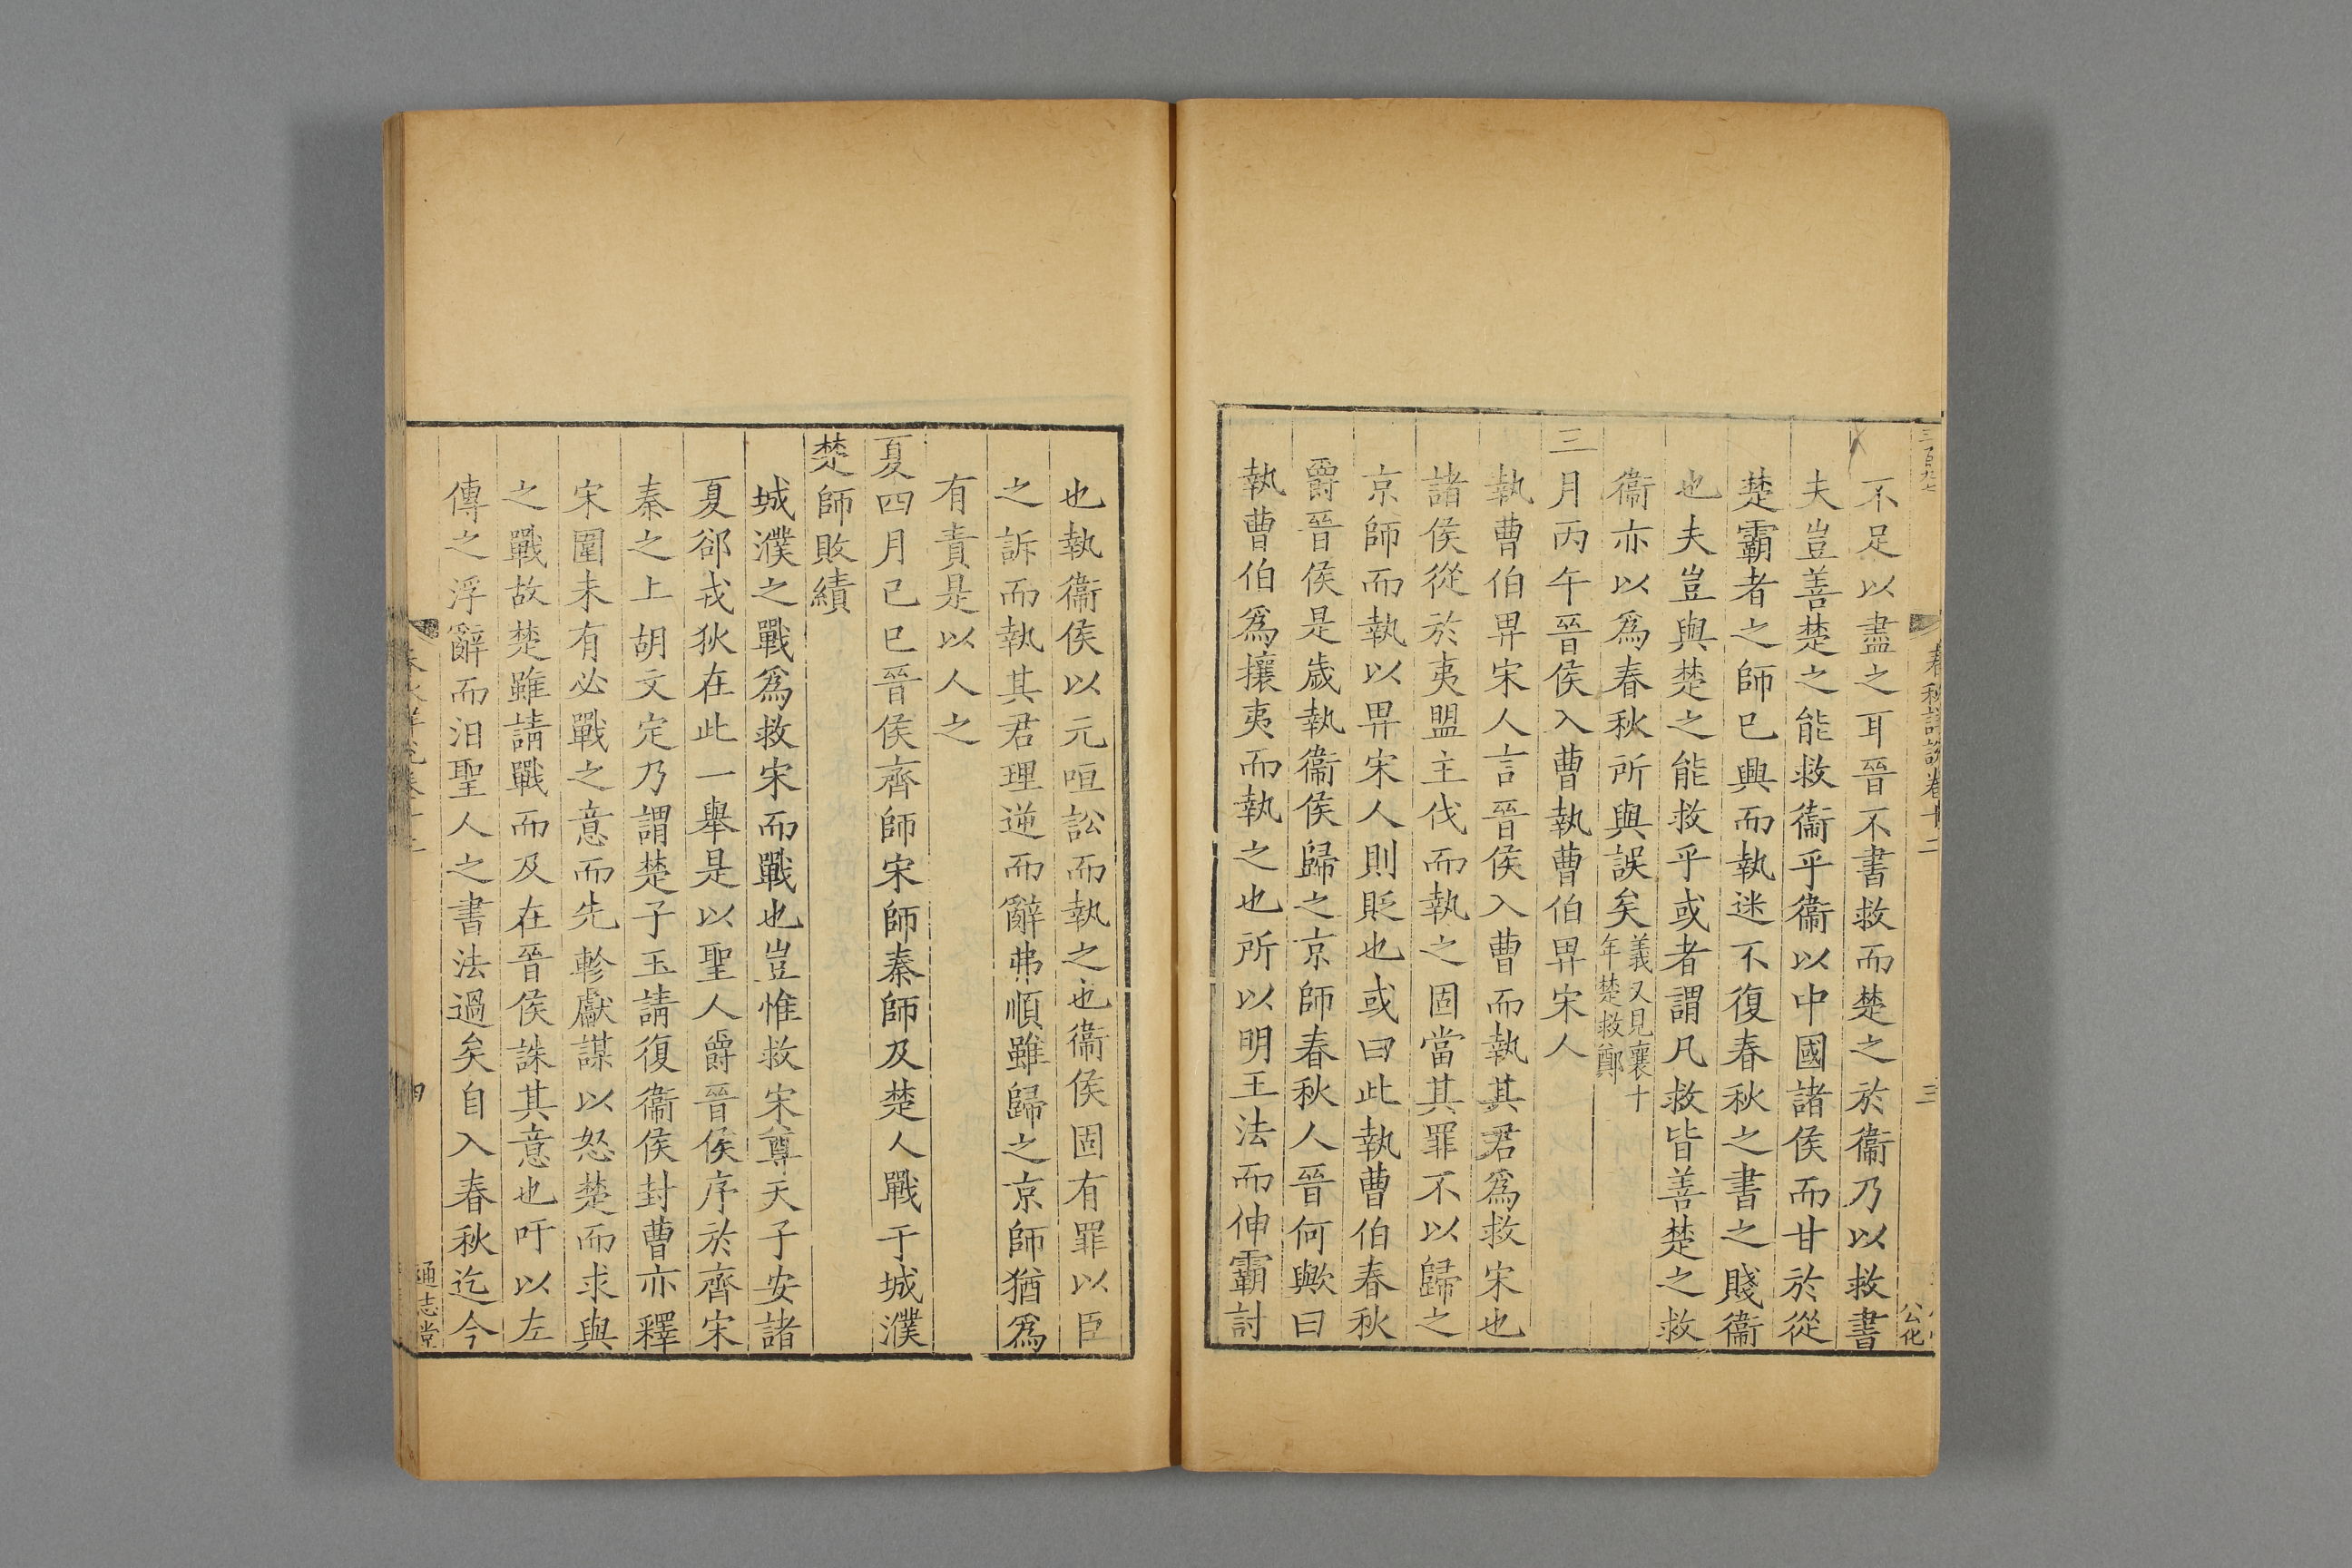 三百九七
春秋詳說卷十二
三
公化
不足以盡之耳晉不書救而楚之於衞乃以救書
夫豈善楚之能救衞乎衞以中國諸侯而甘於從
楚霸者之師已興而執迷不復春秋之書之賤衞
也夫豈與楚之能救乎或者謂凡救皆善楚之救
衞亦以爲春秋所與誤矣義又見襄十
年楚救鄭
三月丙午晉侯入曹執曹伯畀宋人
執曹伯畀宋人言晉侯入曹而執其君爲救宋也
諸侯從於夷盟主伐而執之固當其罪不以歸之
京師而執以畀宋人則貶也或曰此執曹伯春秋
爵晉侯是歲執衞侯歸之京師春秋人晉何歟曰
執曹伯爲攘夷而執之也所以明王法而伸霸討
也執衞侯以元咺訟而執之也衞侯固有罪以臣
之訴而執其君理逆而辭弗順雖歸之京師猶爲
有責是以人之
夏四月己巳晉侯齊師宋師秦師及楚人戰于城濮
楚師敗績
城濮之戰爲救宋而戰也豈惟救宋尊天子安諸
夏郤戎狄在此一舉是以聖人爵晉侯序於齊宋
秦之上胡文定乃謂楚子玉請復衞侯封曹亦釋
宋圍未有必戰之意而先軫獻謀以怒楚而求與
之戰故楚雖請戰而及在晉侯誅其意也吁以左
傳之浮辭而汨聖人之書法過矣自入春秋迄今
春秋詳說卷十二
四
通志堂